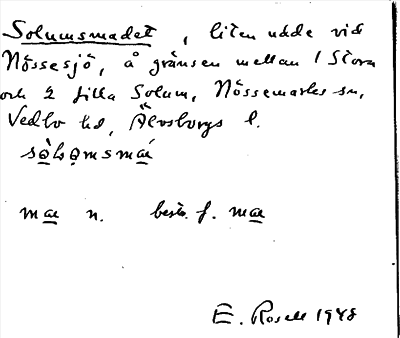 Solumsmadet, liten udde vid
Nössesjö, å gränsen mellan 1 Stora
och 2 Lilla Solum, Nössemarks sn,
Vedbo hd, Älvsborgs l.
mæ n. best. f. mæ
E. Rosell 1948